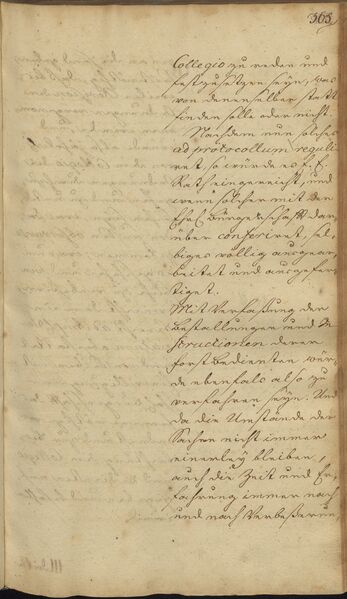 363.
Collegio zu reden und
festzusetzen seyn, was
von denenselben statt
finden solle oder nicht.
Nachdem nun solches
ad protocollum reguli
ret, so würde es E. E.
Rath eingereicht, und
wenn solcher mit der
Ehrl. Bürgerschafft dar
über conferiret, sel
biges völlig ausgear
beitet und ausgefer
tiget.
Mit Verfaßung der
Bestallungen und In
structionen derer
Forst Bedienten wür
de ebenfals also zu
verfahren seyn. Und
da die Umstände der
Sachen nicht immer
einerley bleiben,
auch die Zeit und Er
fahrung immer nach
und nach Verbeßerun,